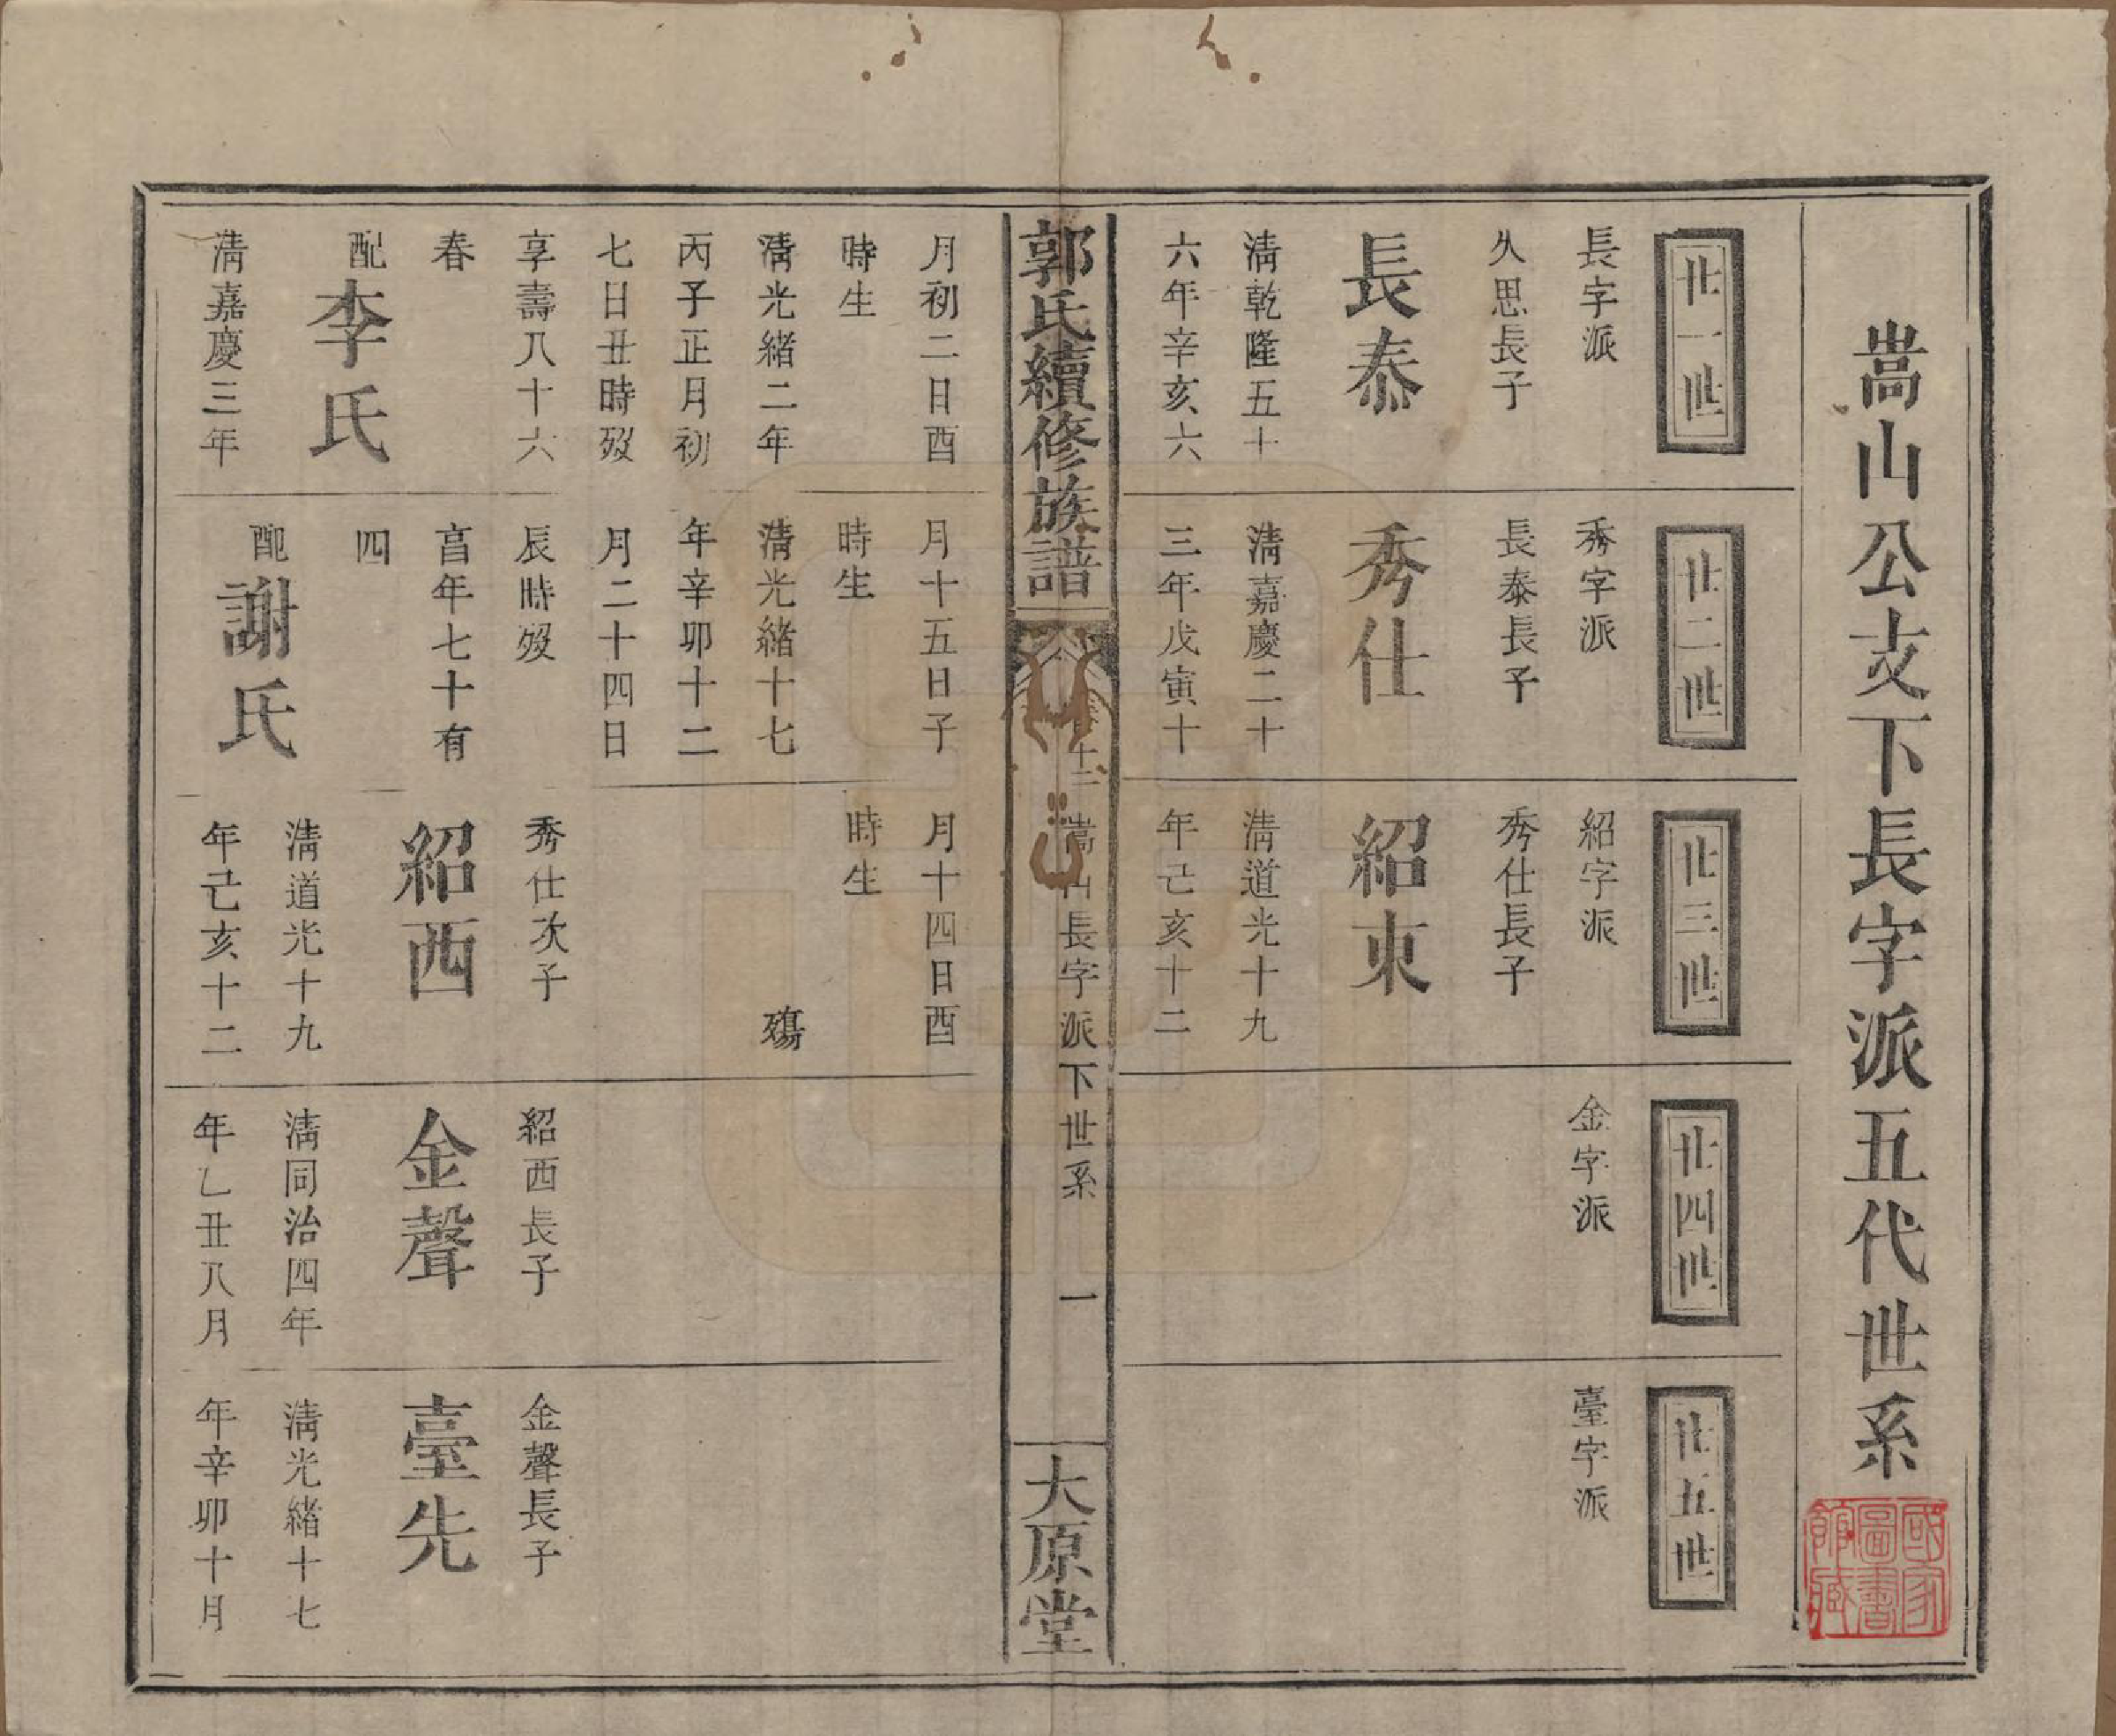 嵩山公支下長字派五代世系
國家圖書館藏
廿一世
長字派
久思長子
長泰
淸乾隆五十
六年辛亥六
廿二世
秀字派
長泰長子
秀仕
淸嘉慶二十
三年戊寅十
廿三世
紹字派
秀仕長子
紹東
淸道光十九
年己亥十二
廿四世
金字派
廿五世
臺字派
郭氏續修族譜
十二 嵩山長字派下世系 一
大原堂
月初二日酉
時生
淸光緒二年
丙子正月初
七日丑時歿
享壽八十六
春
配李氏
淸嘉慶三年
月十五日子
時生
淸光緒十七
年辛卯十二
月二十四日
辰時歿
亯年七十有
四
配謝氏
月十四日酉
時生
殤
秀仕次子
紹西
淸道光十九
年己亥十二
紹西長子
金聲
淸同治四年
年乙丑八月
金聲長子
臺先
淸光緒十七
年辛卯十月